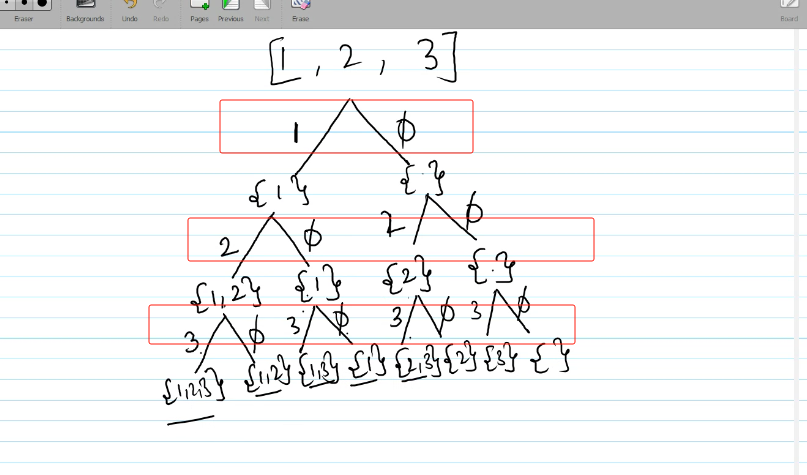 Eraser Backgrounds Undo Redo Pages Previous Next Erase Board
[1, 2, 3]
1 ϕ
{1} {.}
2 ϕ 2 ϕ
{1,2} {1} {2} {.}
3 ϕ 3 ϕ 3 ϕ 3 ϕ
{1,2,3} {1,2} {1,3} {1} {2,3} {2} {3} { }